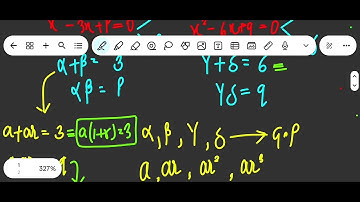 x² - 3x + p = 0   x² - 6x + q = 0
α + β = 3   γ + δ = 6 =
αβ = p   γδ = q
a + ar = 3 = a(1+r) = 3   α, β, γ, δ → G.P
a, ar, ar², ar³
327%